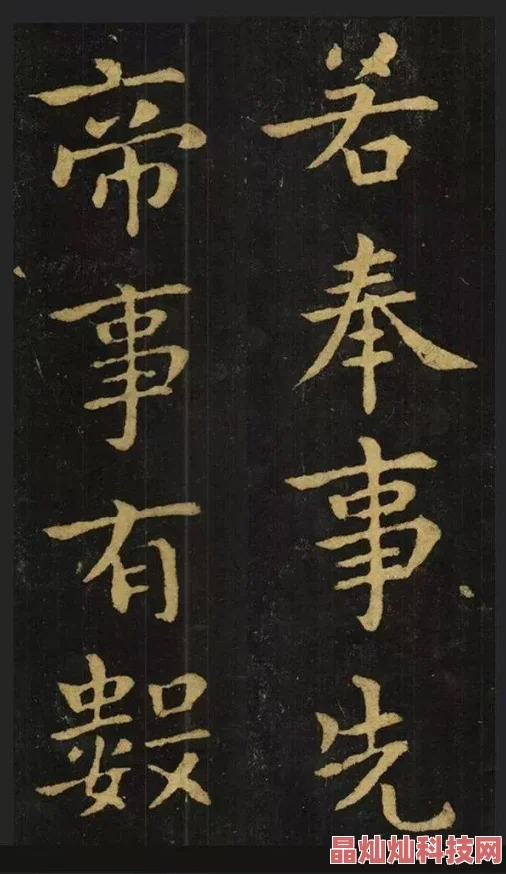 若奉事先
帝事有數
晶灿灿科技网